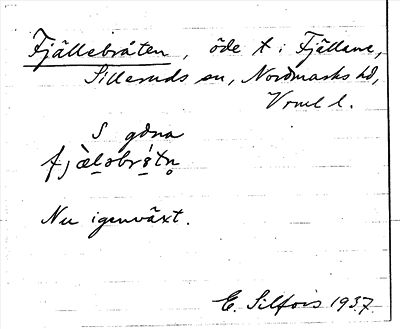 Fjällebråten, öde t. i Fjällane,
Silleruds sn, Nordmarks hd,
Vrml l.
S gdna
fjæ̀l̥əbrǻtn̥
Nu igenväxt.
E. Silfors 1937.